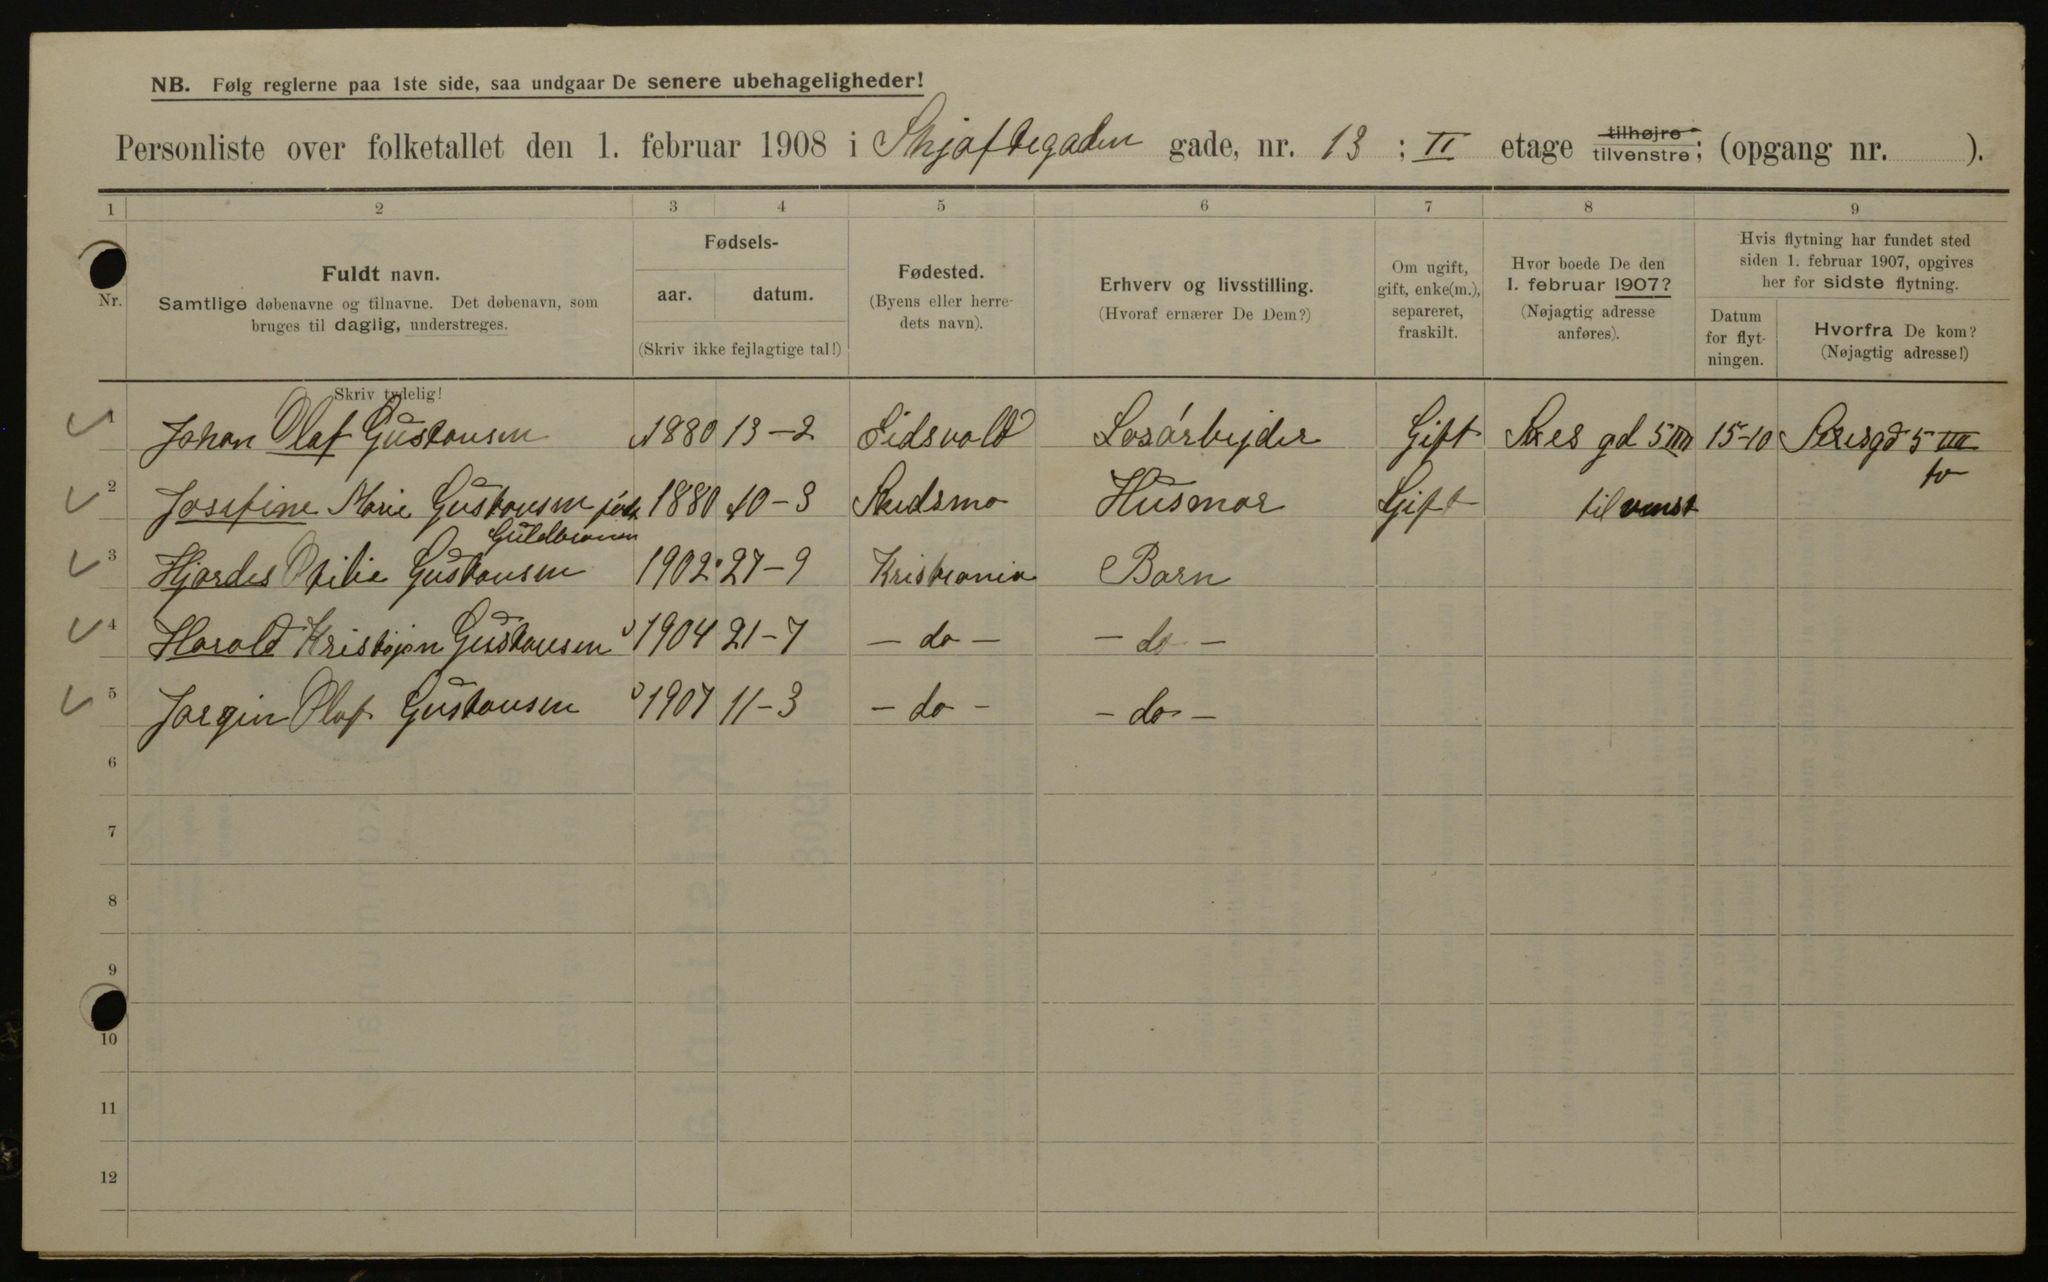 NB. Følg reglerne paa 1ste side, saa undgaar De senere ubehageligheder!
Personliste over folketallet den 1. februar 1908 i Skjøftegaden gade, nr. 13 ; II etage tilhøjre tilvenstre; (opgang nr. ).
1 2 3 4 5 6 7 8 9
Nr.
Fuldt navn.
Samtlige døbenavne og tilnavne. Det døbenavn, som
bruges til daglig, understreges.
Skriv tydelig!
Fødsels-
aar. datum.
(Skriv ikke fejlagtige tal!)
Fødested.
(Byens eller herre-
dets navn).
Erhverv og livsstilling.
(Hvoraf ernærer De Dem?)
Om ugift,
gift, enke(m.),
separeret,
fraskilt.
Hvor boede De den
1. februar 1907?
(Nøjagtig adresse
anføres).
Hvis flytning har fundet sted
siden 1. februar 1907, opgives
her for sidste flytning.
Datum
for flyt-
ningen.
Hvorfra De kom?
(Nøjagtig adresse!)
1 Johan Olaf Gustavsen 1880 13-2 Eidsvold Løsarbejder Gift gd 5 III 15-10 5 III
tv
2 Josefine Marie Gustavsen født 1880 10-3 Gift til venst
Husmor
Guldbransen
3 Hjørdes Otilie Gustavsen 1902 27-9 Kristiania Barn
4 Harald Kristian Gustavsen 1904 21-7 - do - - do -
5 Jørgin Olaf Gustavsen 1907 11-3 - do - - do -
6
7
8
9
10
11
12